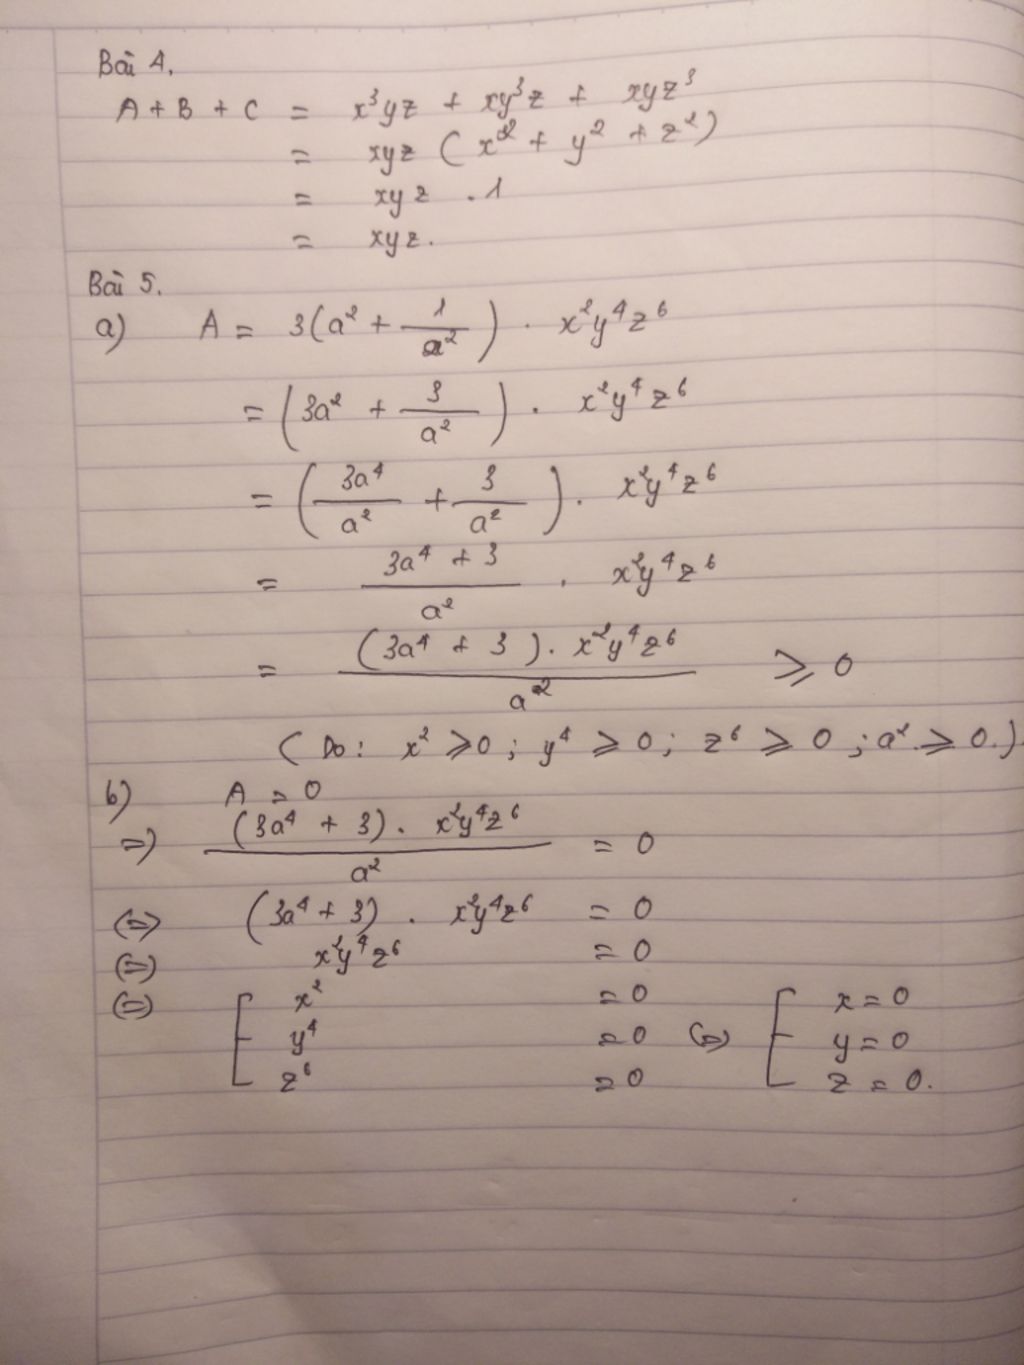 Bài 4.
A + B + C = x³yz + xy³z + xyz³
= xyz ( x² + y² + z² )
= xyz . 1
= xyz.
Bài 5.
a) A = 3(a² + 1/a²) . x²y⁴z⁶
= (3a² + 3/a²) . x²y⁴z⁶
= (3a⁴/a² + 3/a²) . x²y⁴z⁶
= (3a⁴ + 3)/a² . x²y⁴z⁶
= (3a⁴ + 3) . x²y⁴z⁶ / a² ⩾ 0
( Do : x² ⩾ 0 ; y⁴ ⩾ 0 ; z⁶ ⩾ 0 ; a² ⩾ 0. )
b) A = 0
=) (3a⁴ + 3) . x²y⁴z⁶ / a² = 0
(=) (3a⁴ + 3) . x²y⁴z⁶ = 0
(=) x²y⁴z⁶ = 0
(=) [ x² = 0 [ x = 0
y⁴ = 0 (=) y = 0
z⁶ = 0 z = 0.